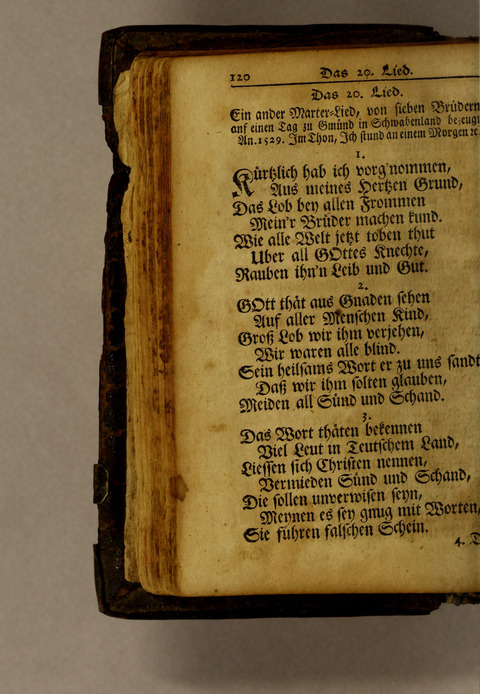 120 Das 20. Lied.
Das 20. Lied.
Ein ander Marter-Lied, von sieben Brüdern
auf einen Tag zu Gmünd in Schwabenland bezeugt
An. 1529. Im Thon, Ich stund an einem Morgen ꝛc.
1.
Kürtzlich hab ich vorg'nommen,
Aus meines Hertzen Grund,
Das Lob bey allen Frommen
Mein'r Brüder machen kund.
Wie alle Welt jetzt toben thut
Uber all GOttes Knechte,
Rauben ihn'n Leib und Gut.
2.
GOtt thät aus Gnaden sehen
Auf aller Menschen Kind,
Groß Lob wir ihm verjehen,
Wir waren alle blind.
Sein heilsams Wort er zu uns sandt
Daß wir ihm solten glauben,
Meiden all Sünd und Schand.
3.
Das Wort thäten bekennen
Viel Leut in Teutschem Land,
Liessen sich Christen nennen,
Vermieden Sünd und Schand,
Die sollen unverwisen seyn,
Meynen es sey gnug mit Worten,
Sie führen falschen Schein.
4. D